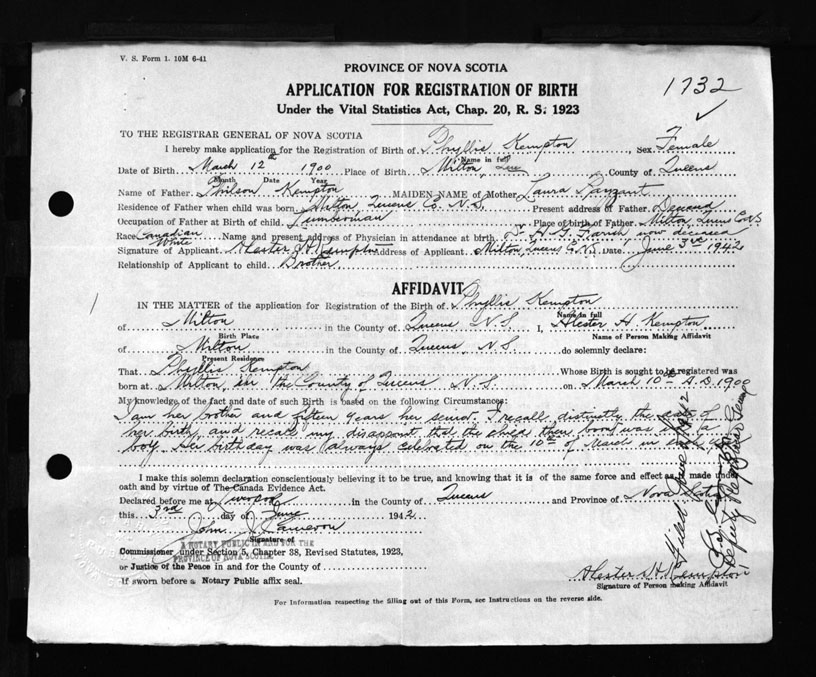 V. S. Form 1. 10M 6-41
PROVINCE OF NOVA SCOTIA
APPLICATION FOR REGISTRATION OF BIRTH
1732
Under the Vital Statistics Act, Chap. 20, R. S. 1923
TO THE REGISTRAR GENERAL OF NOVA SCOTIA
I hereby make application for the Registration of Birth of Phyllis Kempton, Sex Female
Name in full
Date of Birth March 12th 1900 Place of Birth Milton County of Queens
Month Date Year
Name of Father Kempton MAIDEN NAME of Mother Laura
Residence of Father when child was born Milton Queens Co. N.S. Present address of Father Deceased
Occupation of Father at Birth of child Lumberman Place of birth of Father Milton Queens Co NS
Race Canadian White Name and present address of Physician in attendance at birth Dr H. G. Farish now deceased
Signature of Applicant H Kempton Address of Applicant Milton Queens Co. N.S. Date June 3rd 1942
Relationship of Applicant to child Brother
AFFIDAVIT
IN THE MATTER of the application for Registration of the Birth of Phyllis Kempton
Name in full
of Milton in the County of Queens N.S. I, H. Kempton
Birth Place Name of Person Making Affidavit
of Milton in the County of Queens, N.S. do solemnly declare:
Present Residence
That Phyllis Kempton Whose Birth is sought to be registered was
born at Milton, in the County of Queens N.S. on March 10th A.D. 1900
My knowledge of the fact and date of such Birth is based on the following Circumstances:
I am her brother and fifteen years her senior. I recall distinctly the date of
her birth, and recall my that the child then born was not a
boy. Her birthday was always celebrated on the 10th of March in each
I make this solemn declaration conscientiously believing it to be true, and knowing that it is of the same force and effect as if made under
oath and by virtue of The Canada Evidence Act.
Declared before me at Liverpool in the County of Queens and Province of Nova Scotia
this 3rd day of June 1942
John J. Cameron
Signature of
A NOTARY PUBLIC IN AND FOR THE
PROVINCE OF NOVA SCOTIA
Commissioner under Section 5, Chapter 38, Revised Statutes, 1923,
or Justice of the Peace in and for the County of
If sworn before a Notary Public affix seal.
H. Kempton
Signature of Person making Affidavit
For Information respecting the filling out of this Form, see Instructions on the reverse side.
Filed June 1942
Deputy Registrar General